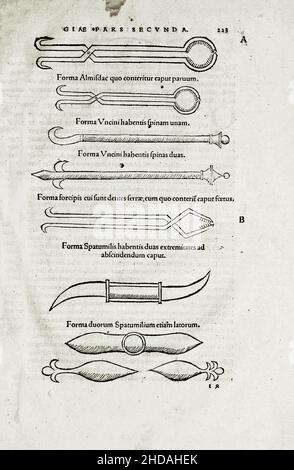 GIAE PARS SECVNDA. 223
A
Forma Almiſdac quo conteritur caput paruum.
Forma Vncini habentis ſpinam unam.
Forma Vncini habentis ſpinas duas.
Forma forcipis cui ſunt dentes ſerræ, cum quo conteriť caput fœtus.
B
Forma Spatumilis habentis duas extremitates ad
abſcindendum caput.
Forma duorum Spatumilium etiam latorum.
alamy
Image ID: 2HDAHEK
www.alamy.com